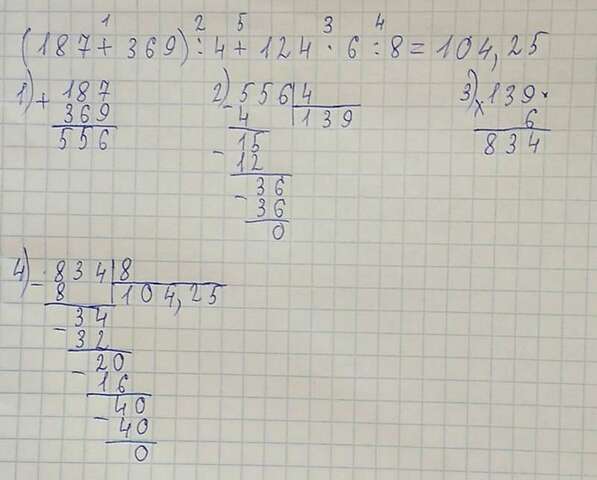 1 2 5 3 4
(187 + 369) : 4 + 124 · 6 : 8 = 104,25
1) + 187
369
556
2) - 556 | 4
4 | 139
15
- 12
36
- 36
0
3) x 139
6
834
4) - 834 | 8
8 | 104,25
34
- 32
20
- 16
40
- 40
0